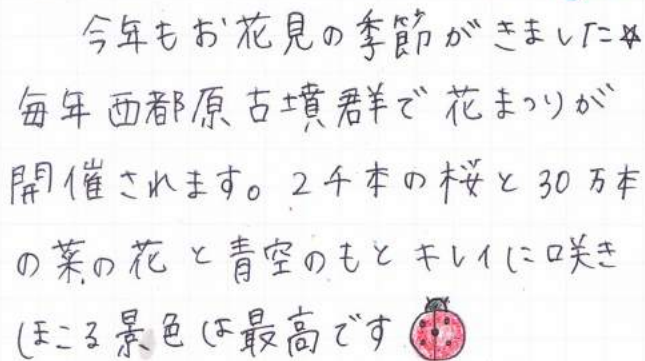 今年もお花見の季節がきました☆
毎年西都原古墳群で花まつりが
開催されます。2千本の桜と30万本
の菜の花と青空のもとキレイに咲き
ほこる景色は最高です